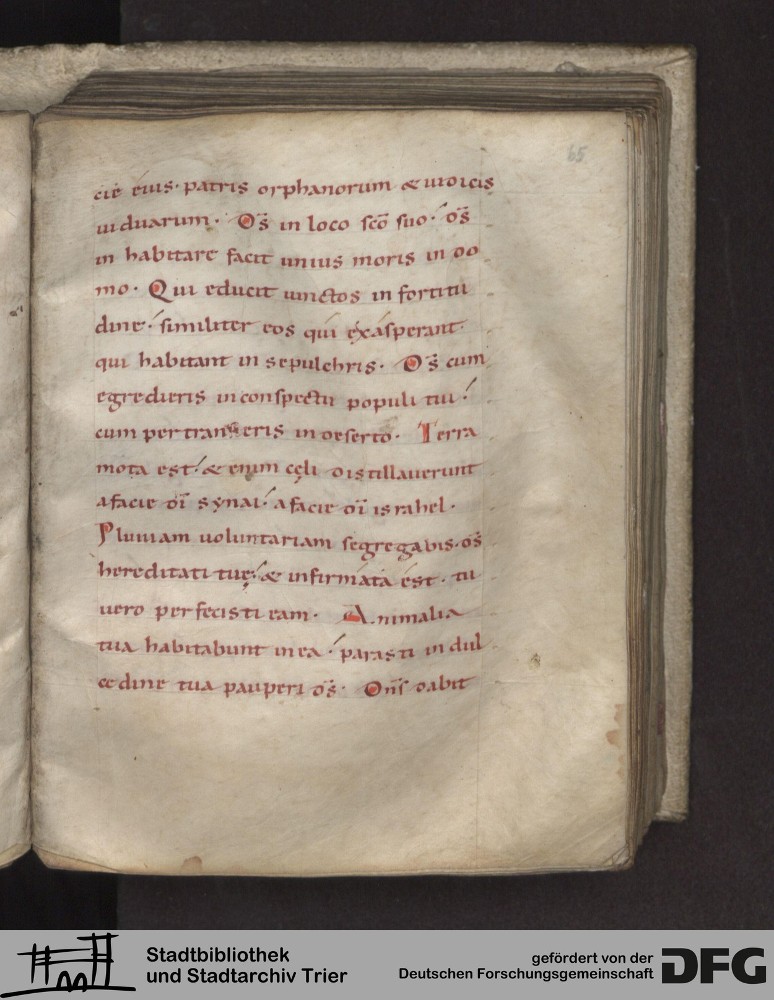 65
cie eius. patris orphanorum & iudicis
uiduarum. Ds̄ in loco scō suo. ds̄
in habitare facit unius moris in do
mo. Qui educit uinctos in fortitu
dine. similiter eos qui exasperant
qui habitant in sepulchris. Ds̄ cum
egredieris in conspectu populi tui.
cum pertransieris in deserto. Terra
mota est. & enim cęli distillauerunt
a facie dī synai. a facie dī israhel.
Pluuiam uoluntariam segregabis. ds̄
hereditati tuę. & infirmata est. tu
uero perfecisti eam. Animalia
tua habitabunt in ea. parasti in dul
cedine tua pauperi ds̄. Dn̄s dabit
Stadtbibliothek
und Stadtarchiv Trier
gefördert von der
Deutschen Forschungsgemeinschaft
DFG